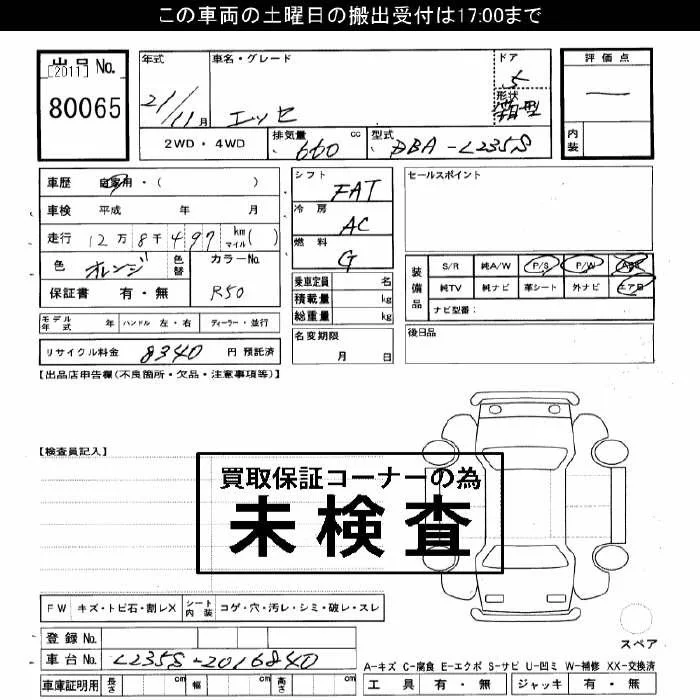 この車両の土曜日の搬出受付は17:00まで
出品No.
[2011]
80065
年式
21/11月
車名・グレード
エッセ
ドア
5
形状
箱型
評価点
―
内装
2WD・4WD
排気量
660
cc
型式
DBA-L235S
車歴
自家用・(　　)
車検
平成　年　月
走行
12万8千497
km
マイル
(　)
色
オレンジ
色替
カラーNo.
R50
保証書
有・無
モデル年式
年
ハンドル 左・右
ディーラー・並行
リサイクル料金
8340
円 預託済
シフト
FAT
冷房
AC
燃料
G
乗車定員
名
積載量
kg
総重量
kg
名変期限
月　日
セールスポイント
装備品
S/R
純A/W
P/S
P/W
ABS
純TV
純ナビ
革シート
外ナビ
エアB
ナビ型番：
後日品
【出品店申告欄(不良箇所・欠品・注意事項等)】
【検査員記入】
買取保証コーナーの為
未検査
FW
キズ・トビ石・割レX
シート内装
コゲ・穴・汚レ・シミ・破レ・スレ
登録No.
車台No.
L235S-2016840
車庫証明用
長さ
cm
幅
cm
高さ
cm
スペア
A-キズ C-腐食 E-エクボ S-サビ U-凹ミ W-補修 XX-交換済
工具
有・無
ジャッキ
有・無